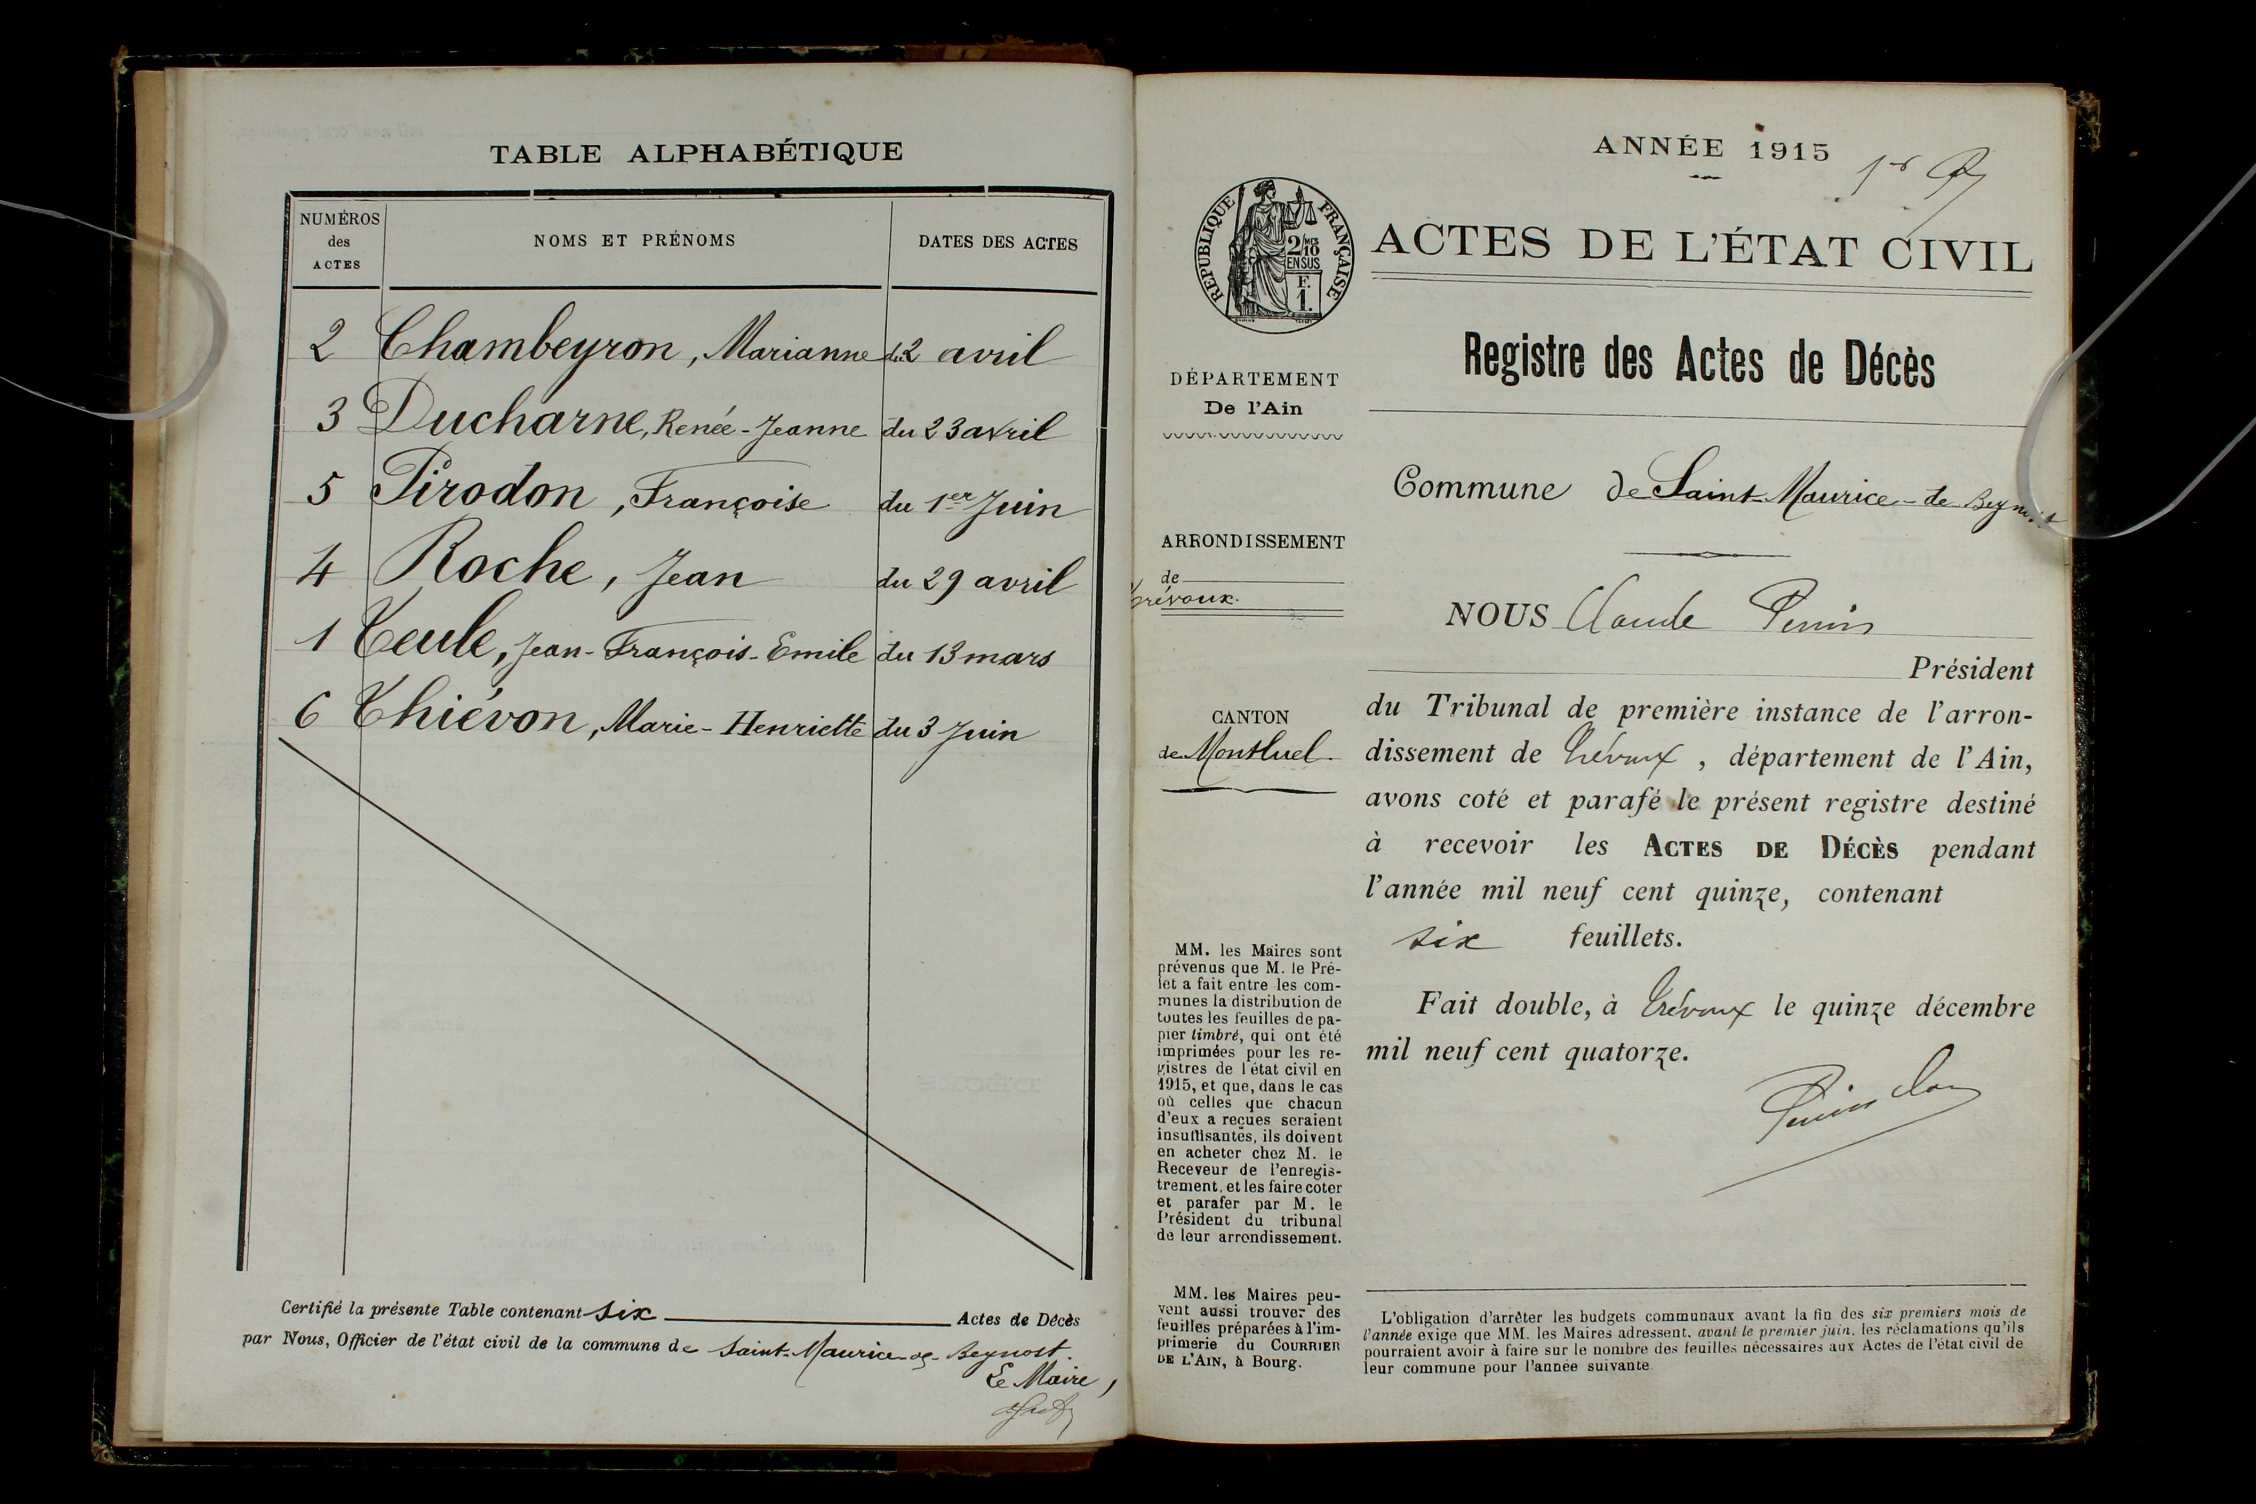 TABLE ALPHABÉTIQUE
NUMÉROS des ACTES NOMS ET PRÉNOMS DATES DES ACTES
2 Chambeyron, Marianne du 2 avril
3 Ducharne, Renée-Jeanne du 23 avril
5 Pirodon, Françoise du 1er Juin
4 Roche, Jean du 29 avril
1 Teule, Jean-François-Emile du 13 mars
6 Thiévon, Marie-Henriette du 3 Juin
Certifié la présente Table contenant six Actes de Décès
par Nous, Officier de l'état civil de la commune de Saint-Maurice-de-Beynost.
Le Maire,
ANNÉE 1915
1er
RÉPUBLIQUE FRANÇAISE
2/10 MES
EN SUS
F.
1.
ACTES DE L'ÉTAT CIVIL
Registre des Actes de Décès
DÉPARTEMENT
De l'Ain
ARRONDISSEMENT
de
Trévoux.
CANTON
de Montluel.
MM. les Maires sont
prévenus que M. le Pré-
fet a fait entre les com-
munes la distribution de
toutes les feuilles de pa-
pier timbré, qui ont été
imprimées pour les re-
gistres de l'état civil en
1915, et que, dans le cas
où celles que chacun
d'eux a reçues seraient
insuffisantes, ils doivent
en acheter chez M. le
Receveur de l'enregis-
trement, et les faire coter
et parafer par M. le
Président du tribunal
de leur arrondissement.
MM. les Maires peu-
vent aussi trouver des
feuilles préparées à l'im-
primerie du COURRIER
DE L'AIN, à Bourg.
Commune de Saint-Maurice-de-Beynost
NOUS Claude Perrin
Président
du Tribunal de première instance de l'arron-
dissement de Trévoux, département de l'Ain,
avons coté et parafé le présent registre destiné
à recevoir les ACTES DE DÉCÈS pendant
l'année mil neuf cent quinze, contenant
six feuillets.
Fait double, à Trévoux le quinze décembre
mil neuf cent quatorze.
L'obligation d'arrêter les budgets communaux avant la fin des six premiers mois de
l'année exige que MM. les Maires adressent, avant le premier juin, les réclamations qu'ils
pourraient avoir à faire sur le nombre des feuilles nécessaires aux Actes de l'état civil de
leur commune pour l'année suivante